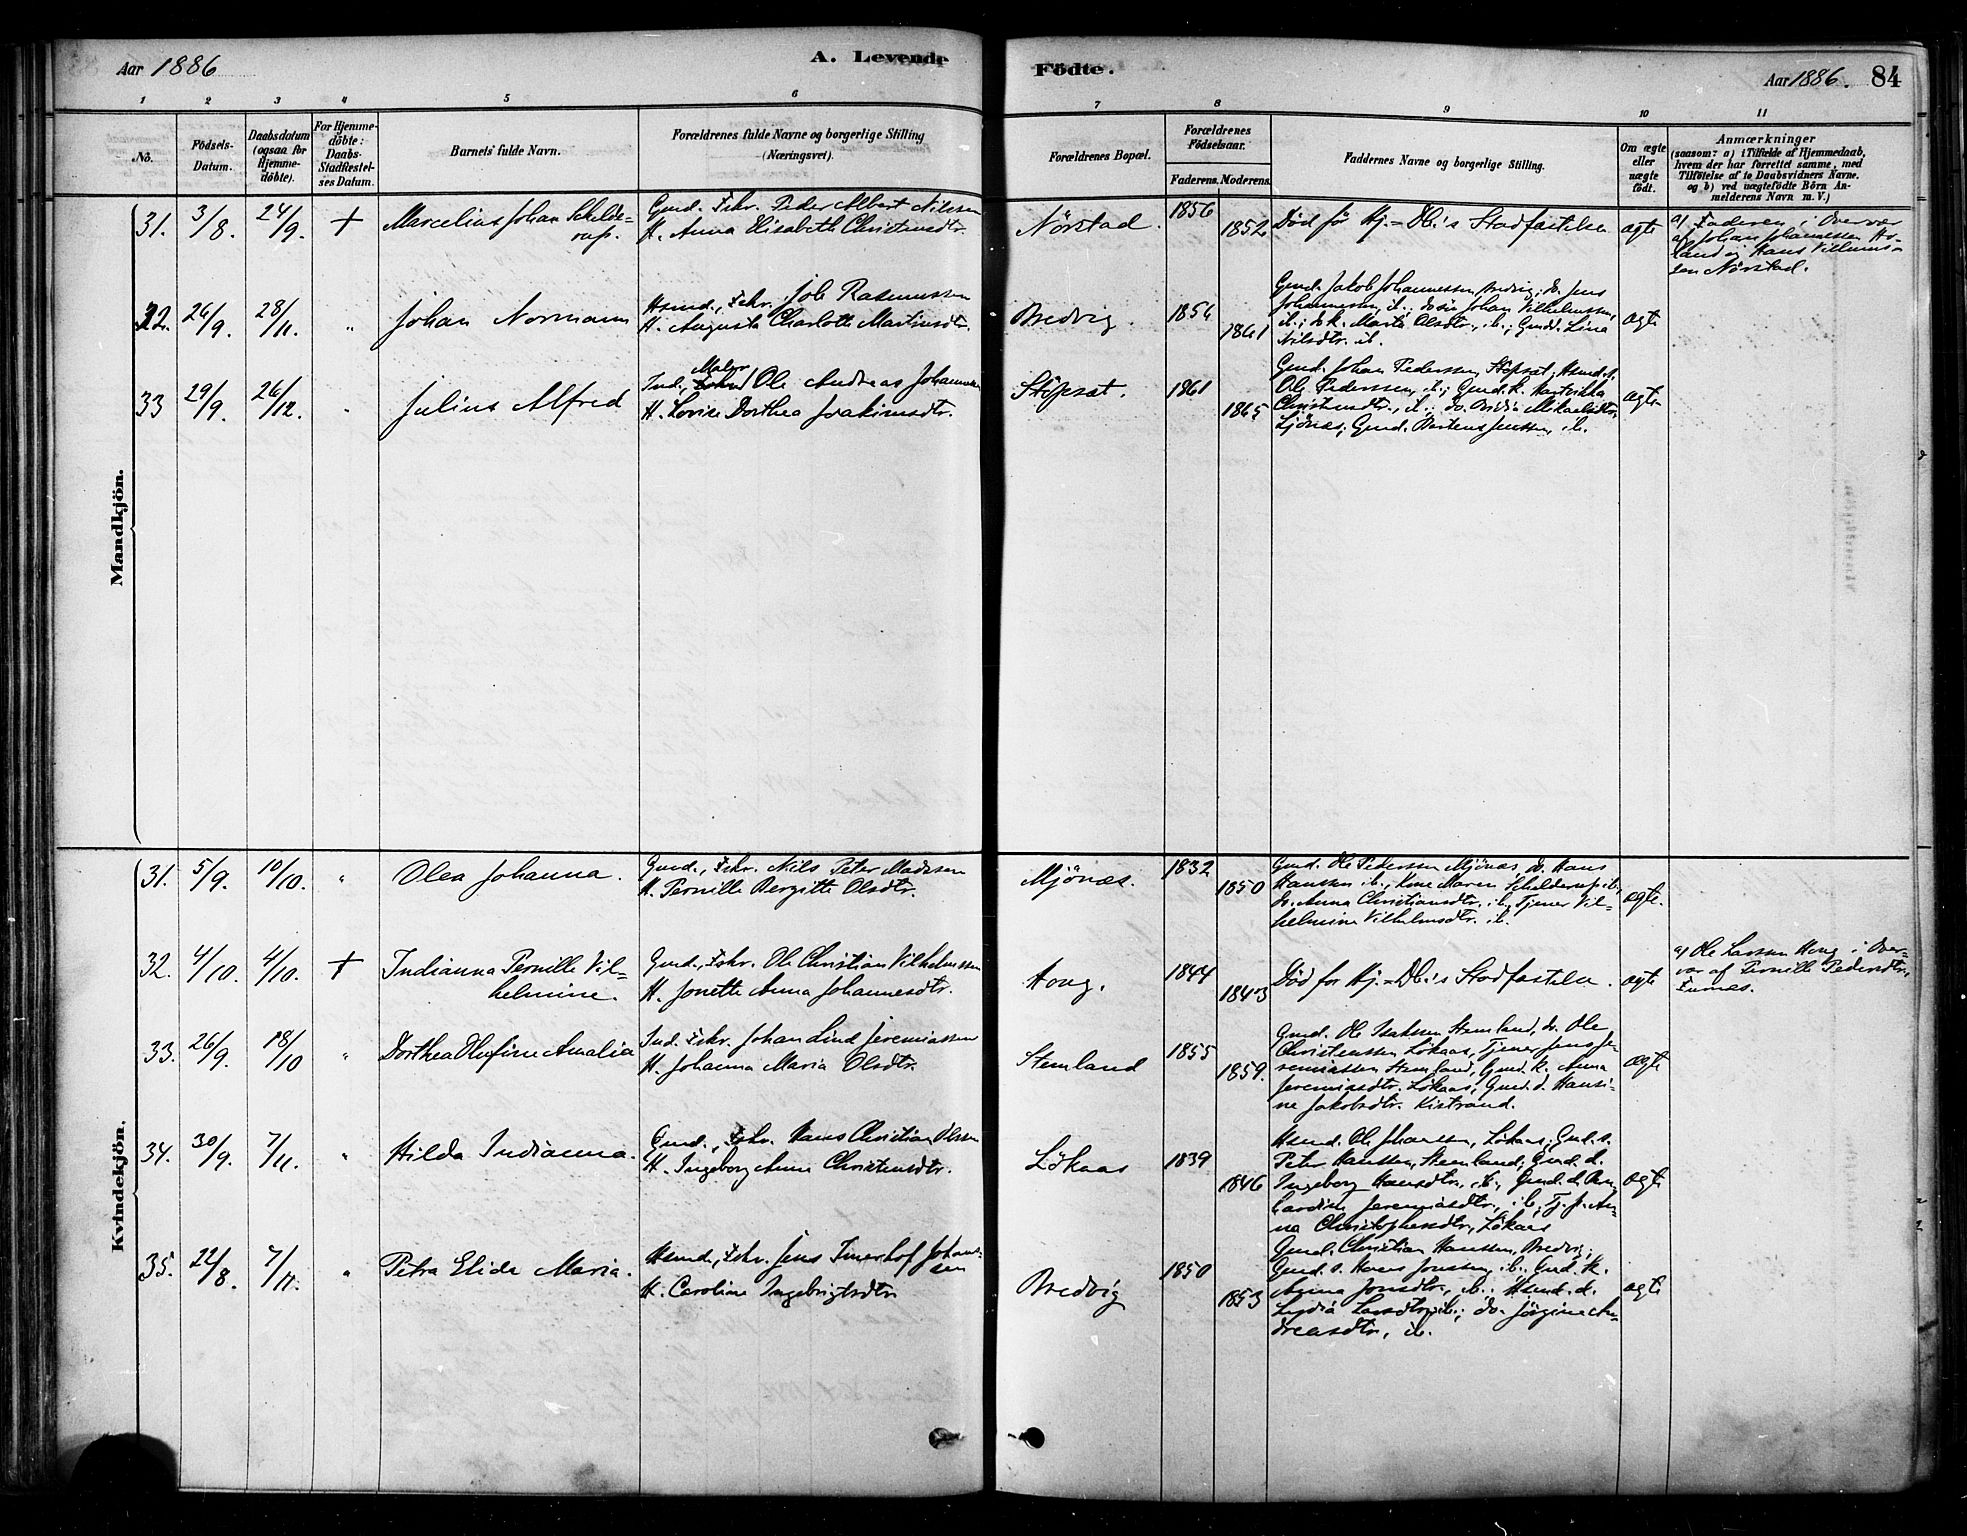 Aar 1886
A. Levende
Födte.
Aar 1886. 84
1 2 3 4 5 6 7 8 9 10 11
No.
Födsels-
Datum.
Daabsdatum
(ogsaa for
Hjemme-
döbte).
For Hjemme-
döbte:
Daabs-
Stadfæstel-
ses Datum.
Barnets fulde Navn.
Forældrenes fulde Navne og borgerlige Stilling
(Næringsvei).
Forældrenes Bopæl.
Forældrenes
Födselsaar.
Faderens. Moderens.
Faddernes Navne og borgerlige Stilling.
Om ægte
eller
uægte
födt.
Anmærkninger
(saasom: a) i Tilfælde af Hjemmedaab,
hvem der har forrettet samme, med
Tilföielse af to Daabsvidners Navne.
og b) ved uægtefödte Börn An-
melderens Navn m. V.)
Mandkjön.
31. 3/8. 24/9. +
Marcelius Johan Schelde-
rup.
Gmd. Fskr. Peder Albert Nilssen
H. Anna Elisabeth Christensdtr.
Nörstad.
1856
1852
Död för Hj.-Db.'s Stadfæstelse
ægte
a) Faderen i Overvær
af Johan Johannessen
land og Hans Vilhelms-
sen Nörstad.
32. 26/9. 28/11. "
Johan Normann
Hsmd., Fskr. Job Rasmussen
H. Augusta Charlotte Martinusdtr.
Bredvig.
1856
1861
Gmd. Jakob Johannessen Bredvig; do. Jens
Johannessen, ib.; do sön Johan Vilhelmssen,
ib.; do k. Marta Olsdtr., ib.; Gmdd. Lina
Nilsdtr. ib.
ægte
33 29/9. 26/12. "
Julius Alfred
Maler
Ind., Ole Andreas Johannessen
H. Lovise Dorthea Joakimsdtr.
Störset.
1861
1865
Gmd. Johan Pederssen, Störset; Hsmd. s.
Ole Pederssen, ib.; Gmd. k. Hertvikka
Christensdtr., ib.; do. Mikaelsdtr.
Ljönæs; Gmd. Bertens Jenssen, ib.
ægte
Kvindekjön.
31. 5/9. 10/10. "
Olea Johanna.
Gmd., Fskr. Nils Peter Madssen
H. Pernille Bergitte Olsdtr.
Mjönæs.
1832
1850
Gmd. Ole Pederssen Mjönæs, do. Hans
Hanssen ib., Kone Maren Schelderup ib.,
do. Anna Christiansdtr. ib., Tjener Vil-
helmine Vilhelmsdtr. ib.
ægte.
32. 4/10. 4/10. +
Indianna Pernille Vil-
helmine.
Gmd., Fskr. Ole Christian Vilhelmssen
H. Jonette Anna Johannesdtr.
Houg.
1844
1843
Död for Hj.-Db.'s Stadfæstelse.
ægte
a) Ole Larssen Houg i Over-
vær af Pernille Pedersdtr,
Furnes.
33. 26/9. 18/10 "
Dorthea Olufine Amalia
Ind. Fskr. Johan Lind Jeremiassen
H. Johanna Maria Olsdtr.
Stemland
1855
1859.
Gmd. Ole Isakssen Stemland, do. Ole
Christenssen Lökaas, Tjener Jens Je-
remiassen Stemland, Gmd. k. Anna
Jeremiasdtr. Lökaas, Gmd. d. Hansi-
ne Jakobsdtr. Kistrand.
ægte
34. 30/9. 7/11. "
Hilda Indianna.
Gmd., Fskr. Hans Christian Olssen
H. Ingeborg Anna Christensdtr.
Lökaas
1839
1846
Hsmd. Ole Johanssen, Lökaas; Gmd. s.
Peter Hanssen, Stemland; Gmd. d.
Ingeborg Hansdtr., ib., Gmd. d. Ber-
hardine Jeremiasdtr., ib., Tj. p. An-
na Christophersdtr, Lökaas
ægte
35. 22/8. 7/11. "
Petra Elida Maria.
Hsmd., Fskr. Jens Imerhof Johans-
sen
H. Caroline Ingebrigtsdtr
Bredvig
1850
1853
Gmd. Christian Hanssen, Bredvig;
Gmd. s. Hans Jonssen, ib. Gmd. k.
Anna Jonsdtr., ib.; Hsmd. d.
Lydia Larsdtr, ib.; do. Jörgine An-
dreasdtr, ib.
ægte